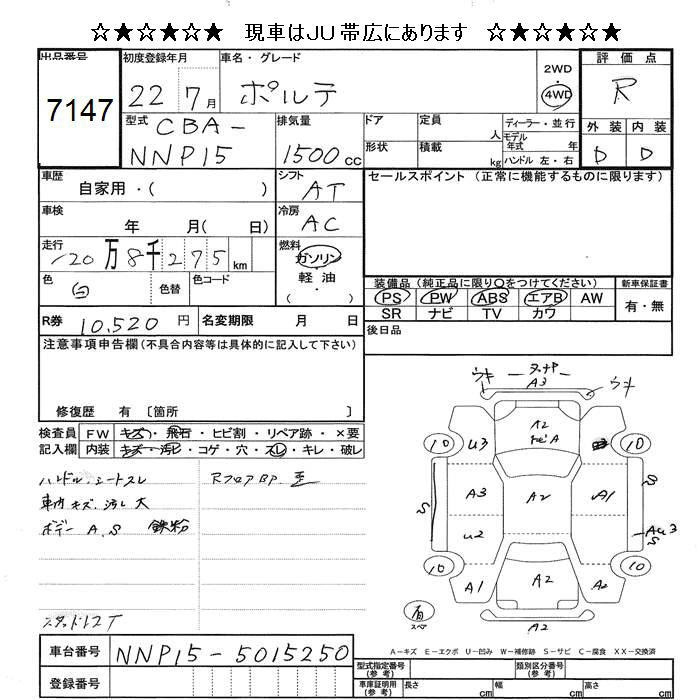 ☆★☆★☆★ 現車はJU帯広にあります ☆★☆★☆★
出品番号
7147
初度登録年月
22 7月
車名・グレード
ポルテ
2WD
・
4WD
評価点
R
型式
CBA-
NNP15
排気量
1500cc
ドア
定員
人
形状
積載
kg
ディーラー・並行
モデル
年式 年
ハンドル 左・右
外装 内装
D D
車歴
自家用・( )
シフト
AT
セールスポイント (正常に機能するものに限ります)
車検
年 月( 日)
冷房
AC
走行
20万8千275km
燃料
ガソリン
軽油
( ・ )
色
白
色替
色コード
装備品 (純正品に限り○をつけてください)
PS PW ABS エアB AW
SR ナビ TV カワ
新車保証書
有・無
R券 10,520円
名変期限 月 日
後日品
注意事項申告欄 (不具合内容等は具体的に記入して下さい)
修復歴 有 〔箇所 〕
検査員 FW キズ・飛石・ヒビ割・リペア跡・×要
記入欄 内装 キズ・汚レ・コゲ・穴・スレ・キレ・破レ
ハンドル・シートスレ
車内キズ・汚レ大
ボデーA.S 鉄粉
RフロアBP 歪
ウキ ウキ
A3
A2
10 U3 10
A3 A2 A1
S S
U2 AU3
S
10 10
A1 A2 A2
有
スペア
A2
A-キズ E-エクボ U-凹み W-補修跡 S-サビ C-腐食 XX-交換済
車台番号 NNP15-5015250
登録番号
型式指定番号
(参考)
類別区分番号
(参考)
車庫証明用
(参考)
長さ cm 幅 cm 高さ cm